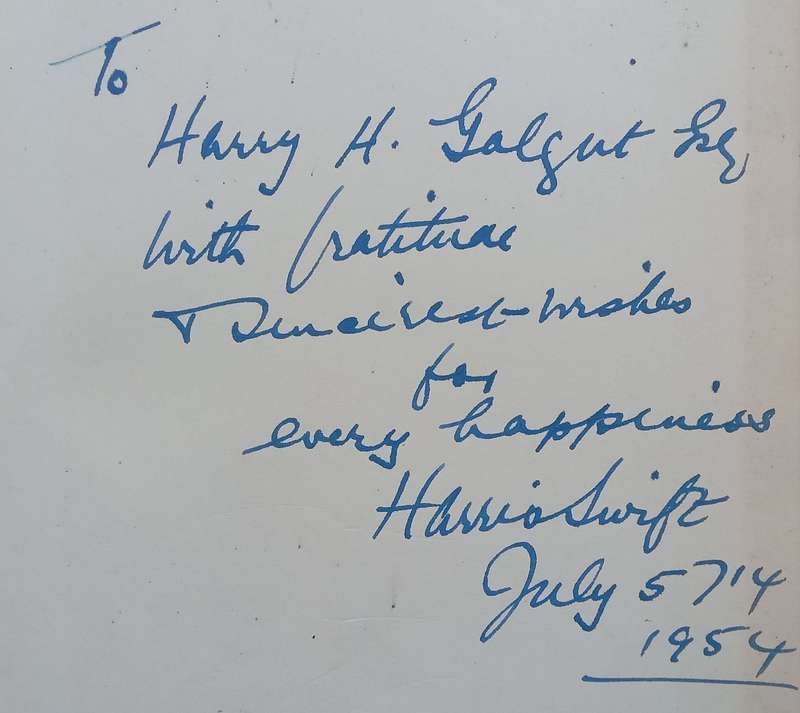 To
Harry H. Galgut Esq
With Gratitude
& Sincerest wishes
for
every happiness
Harris Swift
July 5714
1954